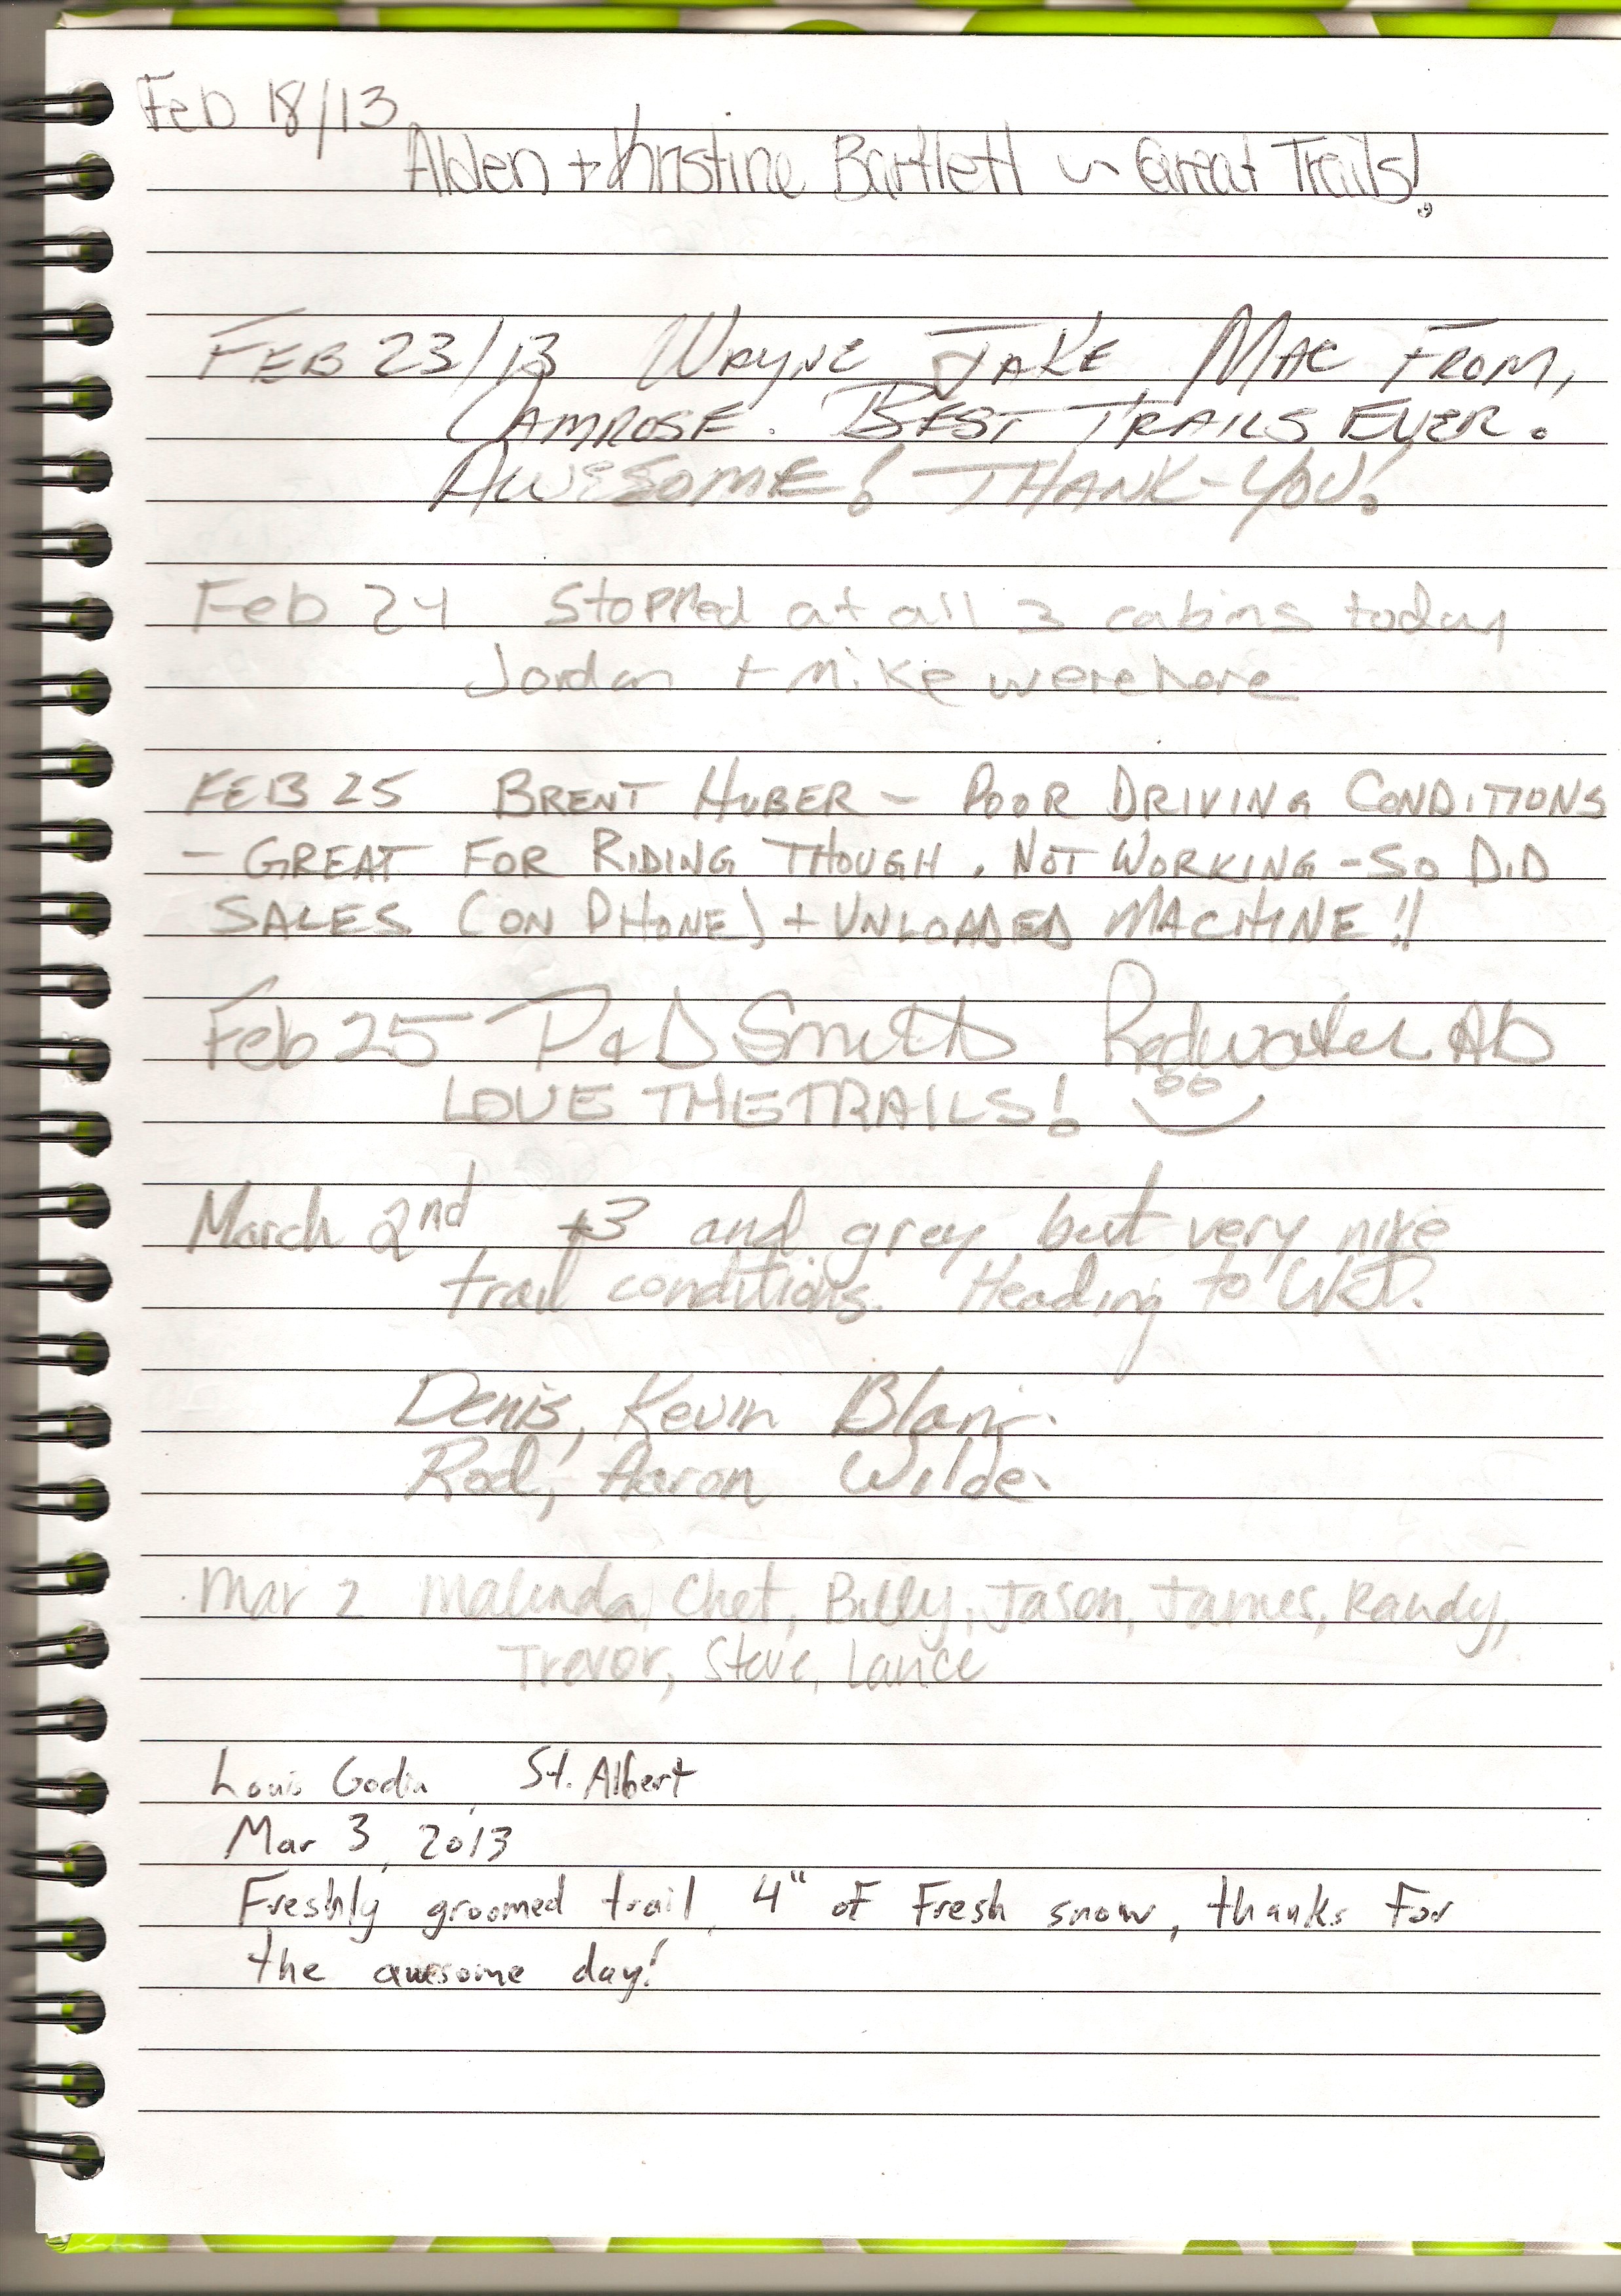 Feb 18/13
Alden + Kristine Bartlett ~ Great Trails!
FEB 23/13 WAYNE JAKE MAC FROM,
CAMROSE. BEST TRAILS EVER.
AWESOME! THANK-YOU!
Feb 24 Stopped at all 3 cabins today
Jordan + Mike were here
FEB 25 BRENT HUBER - POOR DRIVING CONDITIONS
- GREAT FOR RIDING THOUGH. NOT WORKING - SO DID
SALES (ON PHONE) + UNLOADED MACHINE!!
Feb 25 D & D Smith Redwater AB
LOVE THE TRAILS!
March 2nd +3 and grey but very nice
trail conditions. Heading to
Denis, Kevin
Rod, Aaron Wilde.
Mar 2 Malinda, Chet, Billy, Jason, James, Randy,
Trevor, Steve, Lance
Louis Godin, St. Albert
Mar 3, 2013
Freshly groomed trail, 4" of Fresh snow, thanks for
the awesome day!